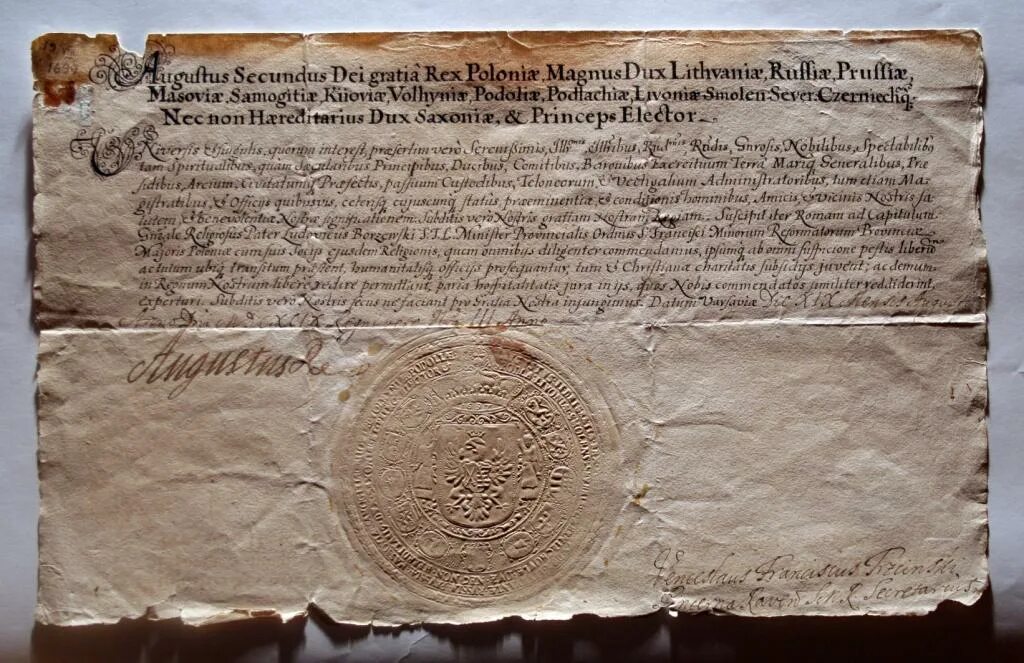 Augustus Secundus Dei gratiâ Rex Poloniæ, Magnus Dux Lithvaniæ, Russiæ, Prussiæ,
Masoviæ, Samogitiæ, Kiioviæ, Volhyniæ, Podoliæ, Podlachiæ, Livoniæ Smolen. Sever. Czerniechq;
Nec non Hæreditarius Dux Saxoniæ, & Princeps Elector
Universis & singulis, quorum interest, præsertim verò Serenissimis, Illustribus, Gnrosis, Nobilibus, Spectabilib9
tam Spiritualibus, quàm Sæcularibus Principibus, Ducibus, Comitibus, Baronibus Exercituum Terrâ Mariq; Generalibus, Præ
sidibus, Arcium, Civitatumq; Præfectis, passuum Custodibus, Teloneorum, & Vectigalium Administratoribus, tum etiam Ma
gistratibus, & Officijs quibusvis, ceterisq; cujuscunq; status, præeminentiæ & conditionis hominibus, Amicis, & Vicinis Nostris sa
lutem, & benevolentiæ Nostræ significationem. Subditis verò Nostris gratiam Nostram Regiam. Suscipit iter Romam ad Capitulum
Gnrale Religiosus Pater Ludovicus Borzewski S.T.L. Minister Provincialis Ordinis S. Francisci Minorum Reformatorum Provinciæ
Majoris Poloniæ cum suis Socijs ejusdem Religionis, quem omnibus diligenter commendamus, ipsumq; ab omni suspicione pestis liberũ
ac tutum ubiq; transitum præstent, humanitatisq; officijs prosequantur, tum & Christianæ charitatis subsidijs juvent; ac demum
in Regnum Nostrum liberè redire permittant, paria hospitalitatis jura in ijs, quos Nobis commendatos similiter reddiderint,
experturi. Subditis verò Nostris secus ne faciant pro Gratia Nostra injungimus. Datum Varsaviæ Die XIX Mensis Augusti
III Anno
Augustus Rex
Franciscus
Secretarius